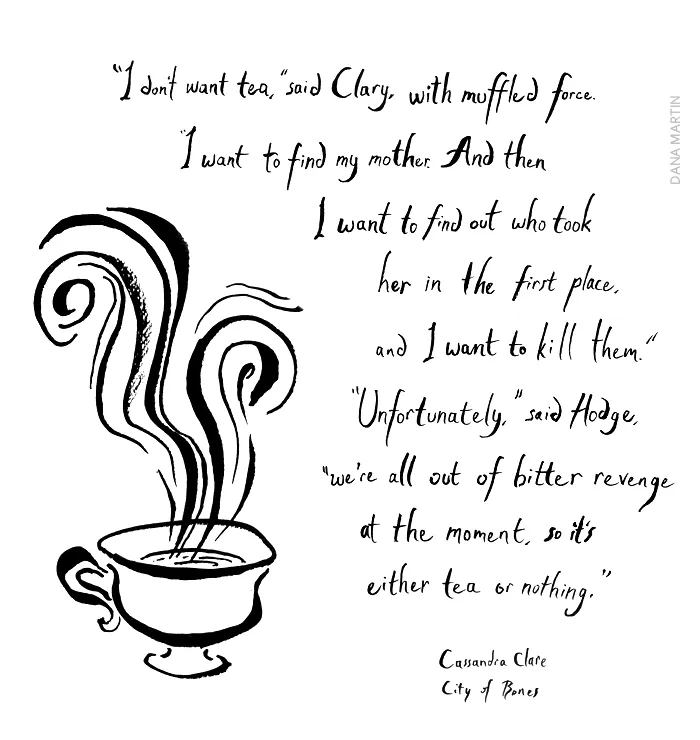 "I don't want tea," said Clary, with muffled force.
"I want to find my mother. And then
I want to find out who took
her in the first place,
and I want to kill them."
"Unfortunately," said Hodge,
"we're all out of bitter revenge
at the moment, so it's
either tea or nothing."
Cassandra Clare
City of Bones
DANA MARTIN